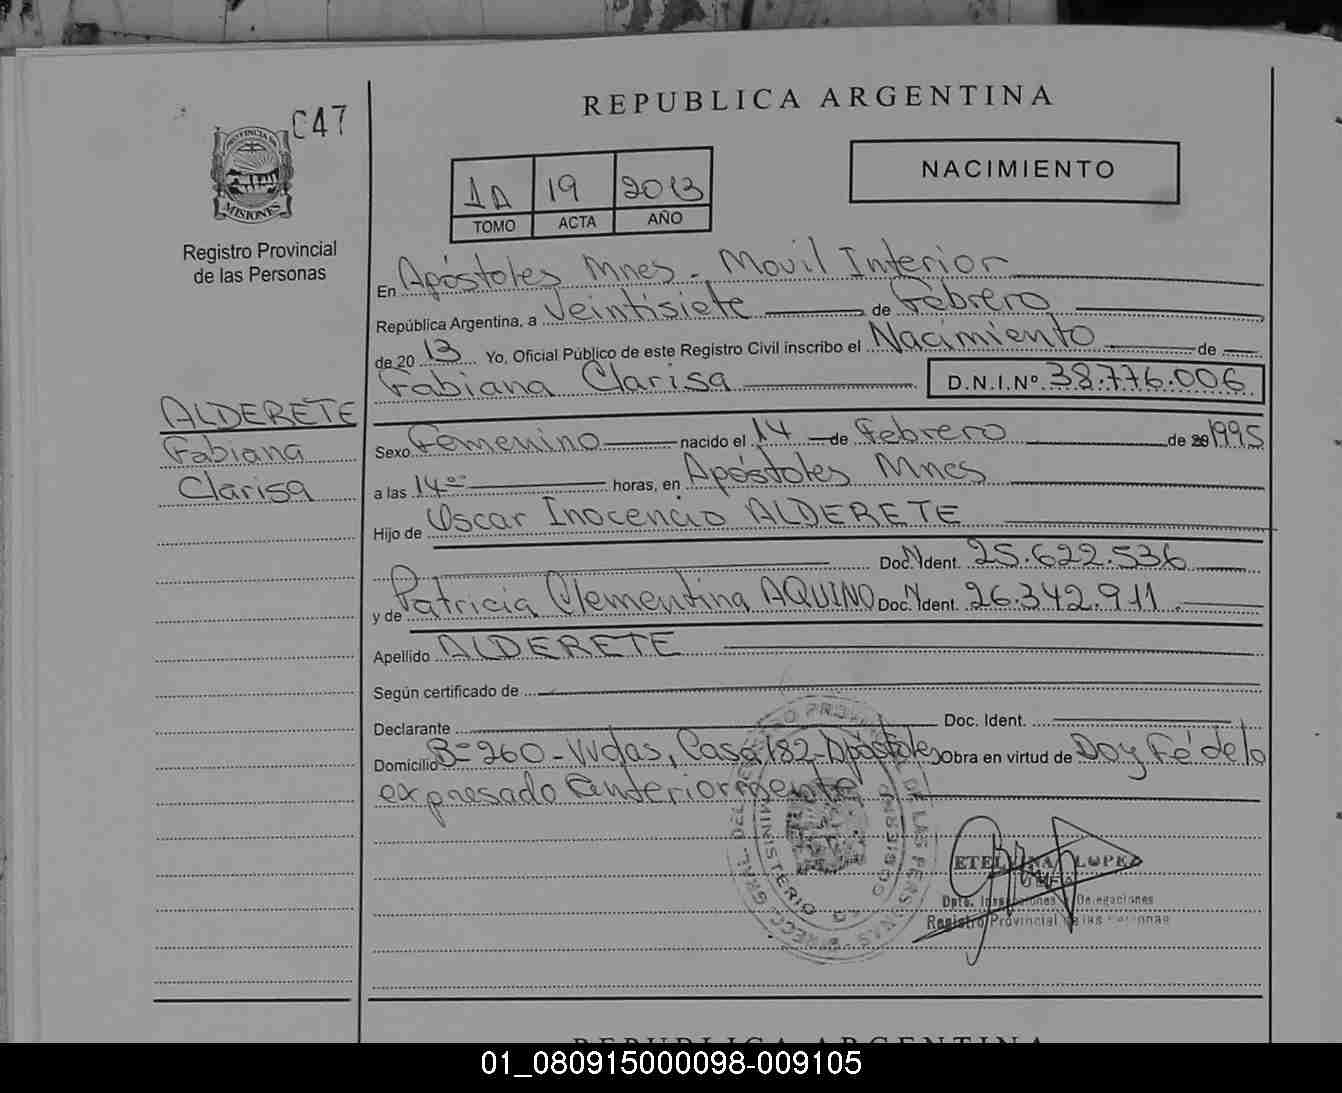 C47
PROVINCIA DE
MISIONES
Registro Provincial
de las Personas
REPUBLICA ARGENTINA
NACIMIENTO
1A 19 2013
TOMO ACTA AÑO
En Apóstoles Mnes. Movil Interior
República Argentina, a Veintisiete de Febrero
de 2013 Yo, Oficial Público de este Registro Civil inscribo el Nacimiento de
Fabiana Clarisa D.N.I.Nº 38.776.006
ALDERETE
Fabiana
Clarisa
Sexo Femenino nacido el 14 de Febrero de 1995
a las 14 horas, en Apóstoles Mnes
Hijo de Oscar Inocencio ALDERETE
Doc. Ident. 25.622.536
y de Patricia Clementina AQUINO Doc. Ident. 26.342.911
Apellido ALDERETE
Según certificado de
Declarante Doc. Ident.
Domicilio Bº 260-Vvdas, Casa 182-Apóstoles Obra en virtud de Doy Fé de lo
expresado anteriormente
MINISTERIO DE
DE LAS PERSONAS
ETELVINA LOPEZ
JEFA
Dpto. Inspecciones Delegaciones
Registro Provincial de las Personas
REPUBLICA ARGENTINA
01_080915000098-009105